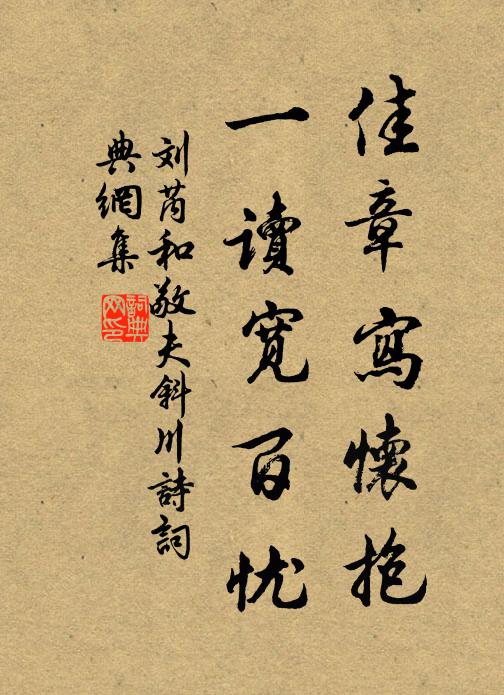 佳章寫懷抱
一讀寬百忧
刘芮和敬夫斜川詩詞
典網集
詞典
网印